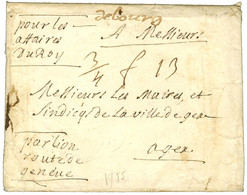 pour les
affaires
DuRoy
debourg
A Messieurs
3/4 f 13
Messieurs Les Maires et
Sindicqs de la ville de gex
par lion
route de
geneve
a gex